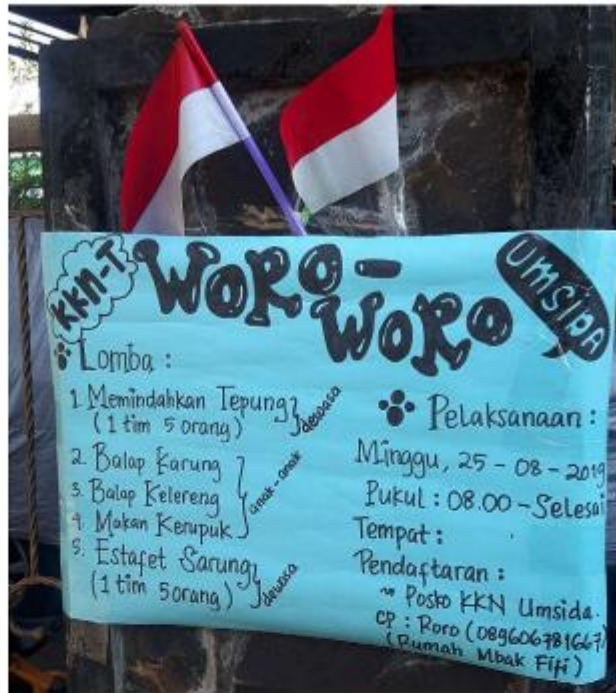 KKN-T
WORO-
WORO
UMSIDA
Lomba :
1. Memindahkan Tepung
(1 tim 5 orang)
dewasa
2. Balap Karung
3. Balap Kelereng
4. Makan Kerupuk
anak-anak
5. Estafet Sarung
(1 tim 5 orang)
dewasa
Pelaksanaan :
Minggu, 25-08-2019
Pukul : 08.00-Selesai
Tempat :
Pendaftaran :
~ Posko KKN Umsida.
CP : Roro (089606781667)
(Rumah Mbak Fifi)